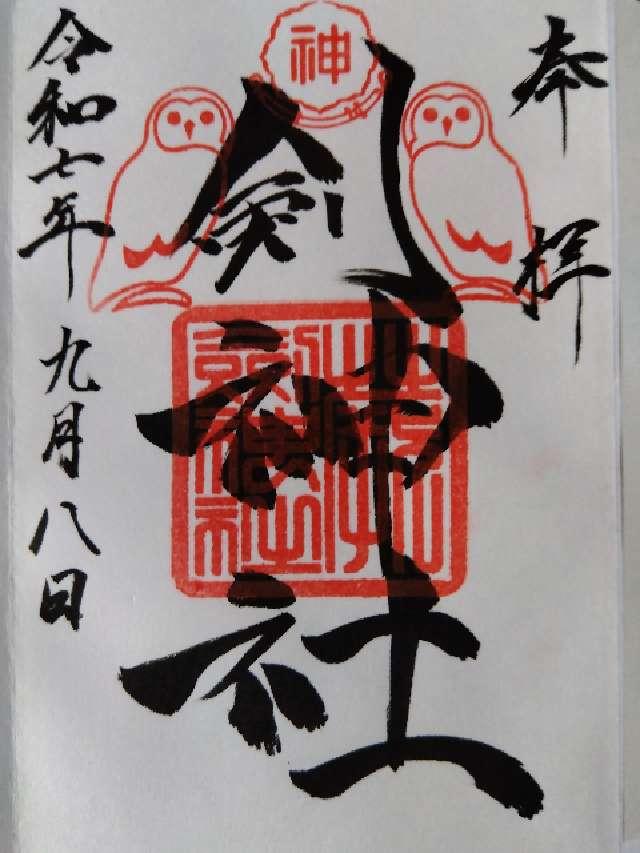 奉拝
神
剣神社
令和七年九月八日